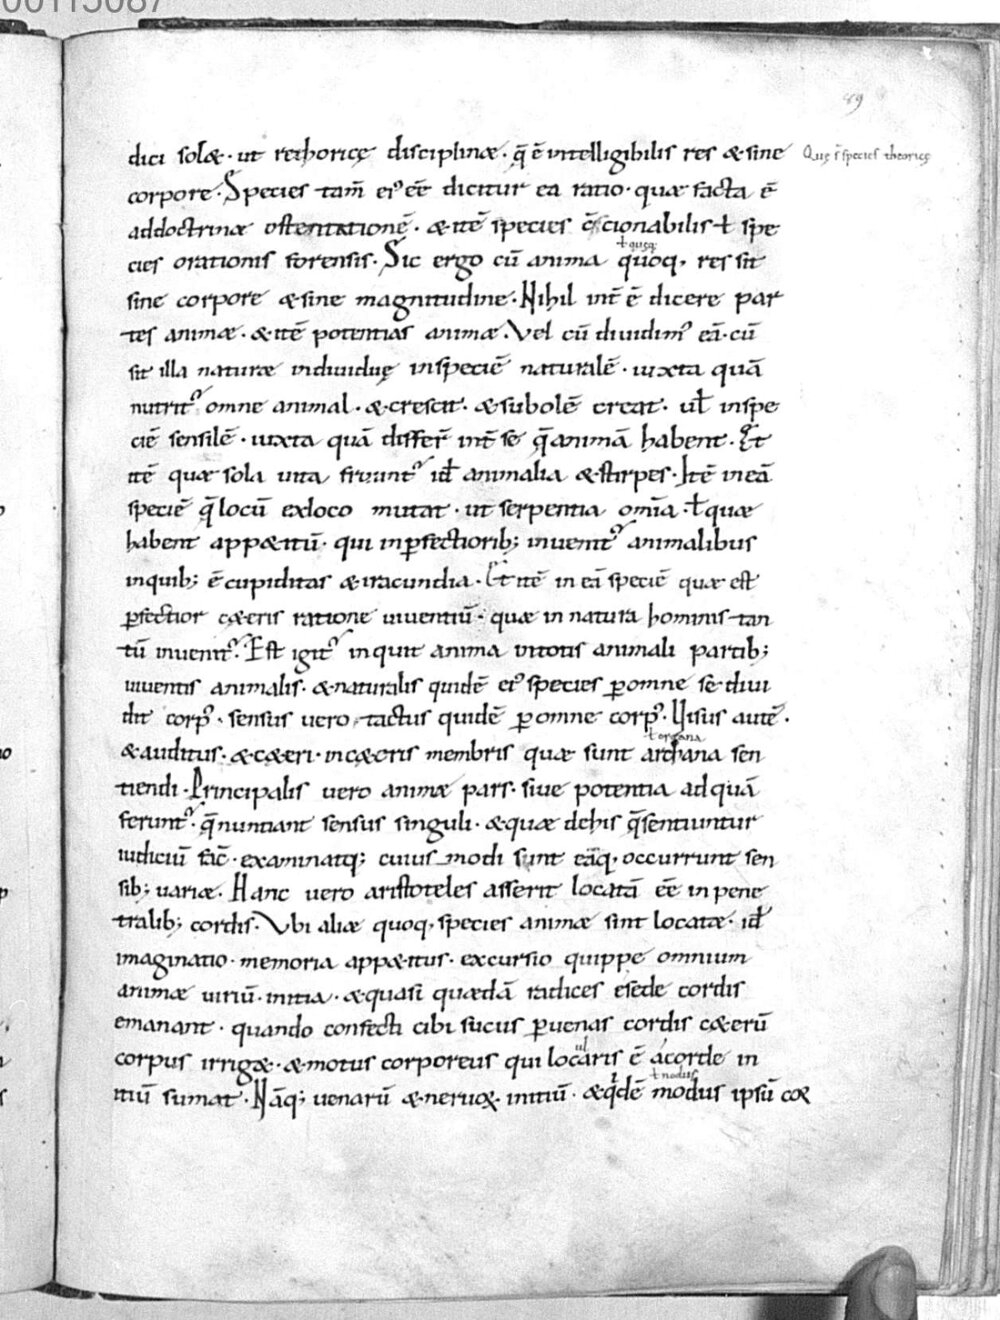 00115087
89
dici solæ · ut rethoricę disciplinæ · q̄ ē intelligibilis res & sine
Quę s̄ species theoricę
corpore · Species tam̄ ei᾿ eē dicitur ea ratio · quæ facta ē
ad doctrinæ ostentationē · & itē species c̄cionabilis ł spe
cies orationis forensis · Sic ergo cū anima quoq, res sit
ł quęq;
sine corpore & sine magnitudine · Nihil int̄ ē dicere par
tes animæ · & itē potentias animæ · Vel cū diuidim᾿ eā · cū
sit illa naturæ indiuiduę in speciē naturalē · iuxta quā
nutrit᾿ omne animal · & crescit · & subolē creat · uł in spe
ciē sensilē · iuxta quā differ̄ int̄ se q̄ animā habent · Et
itē quæ sola uita fruunt᾿ id animalia & stirpes · Itē in eā
speciē q̄ locū ex loco mutat · ut serpentia omīa · ł quæ
habent app&itū · qui in ꝑfectiorib; inuenit᾿ animalibus
in quib; ē cupiditas & iracundia · Et itē in eā speciē quæ est
ꝑfectior c&eris ratione uiuentiū · quæ in natura hominis tan
tū inuenit᾿ · Est igit᾿ inquit anima in totis animali partib;
uiuentis animalis · & naturalis quidē ei᾿ species ꝑ omne se diui
dit corp᾿ · sensus uero tactus quidē ꝑ omne corp᾿ · Uisus autē ·
& auditus · & c&eri · in c&eris membris quæ sunt archana sen
ł organa
tiendi · Principalis uero animæ pars · siue potentia ad quā
ferunt᾿ · q̄ nuntiant sensus singuli · & quæ de his q̄ sentiuntur
iudiciū fac̄ · examinatq; cuius modi sunt eāq, occurrunt sen
sib; uariæ · Hanc uero aristoteles asserit locatā eē in pene
tralib; cordis · Vbi aliæ quoq, species animæ sint locatæ · id
imaginatio · memoria app&itus · excursio quippe omnium
animæ uiriū · initia · & quasi quædā radices e sede cordis
emanant · quando confecti cibi sucus ꝑ uenas cordis c&erū
corpus irrig& · & motus corporeus qui locaris ē a corde in
ul
itiū sumat · Nāq; uenarū & neruoꝝ initiū · & qdē modus ipsū coꝛ
ł nodus